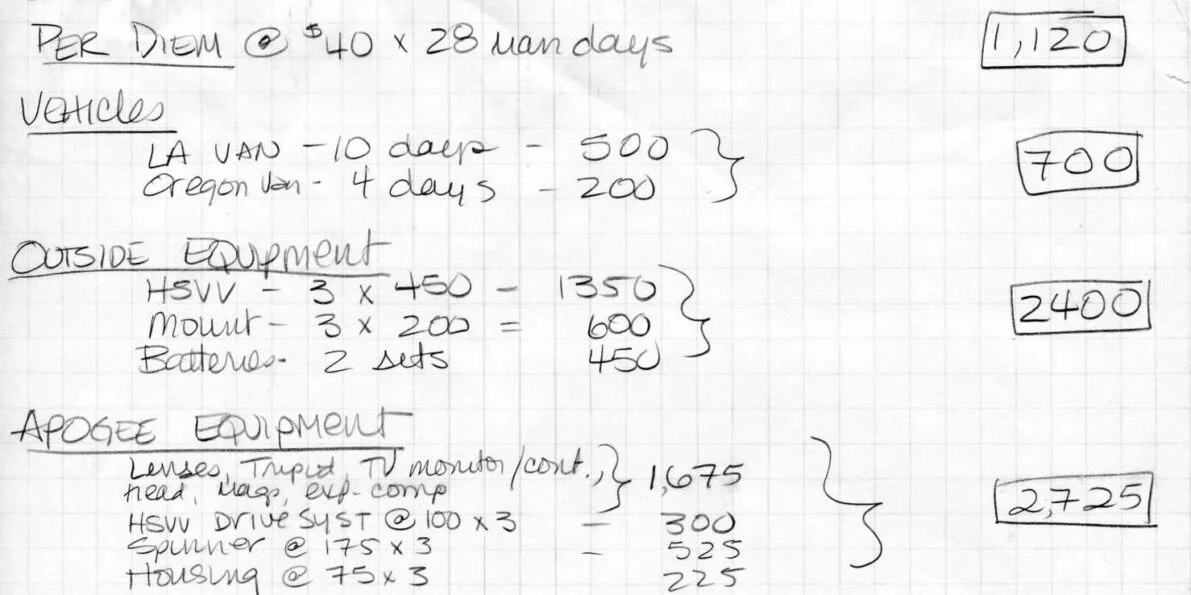 PER DIEM @ $40 x 28 man days 1,120
Vehicles
LA VAN - 10 days - 500
Oregon Van - 4 days - 200 700
OUTSIDE EQUIPMENT
HSVV - 3 x 450 - 1350
Mount - 3 x 200 = 600 2400
Batteries - 2 sets 450
APOGEE EQUIPMENT
Lenses, Tripod, TV monitor/cont., 1,675
head, mags, exp-comp
HSVV DRIVE SYST @ 100 x 3 - 300 2,725
Spinner @ 175 x 3 - 525
Housing @ 75 x 3 225